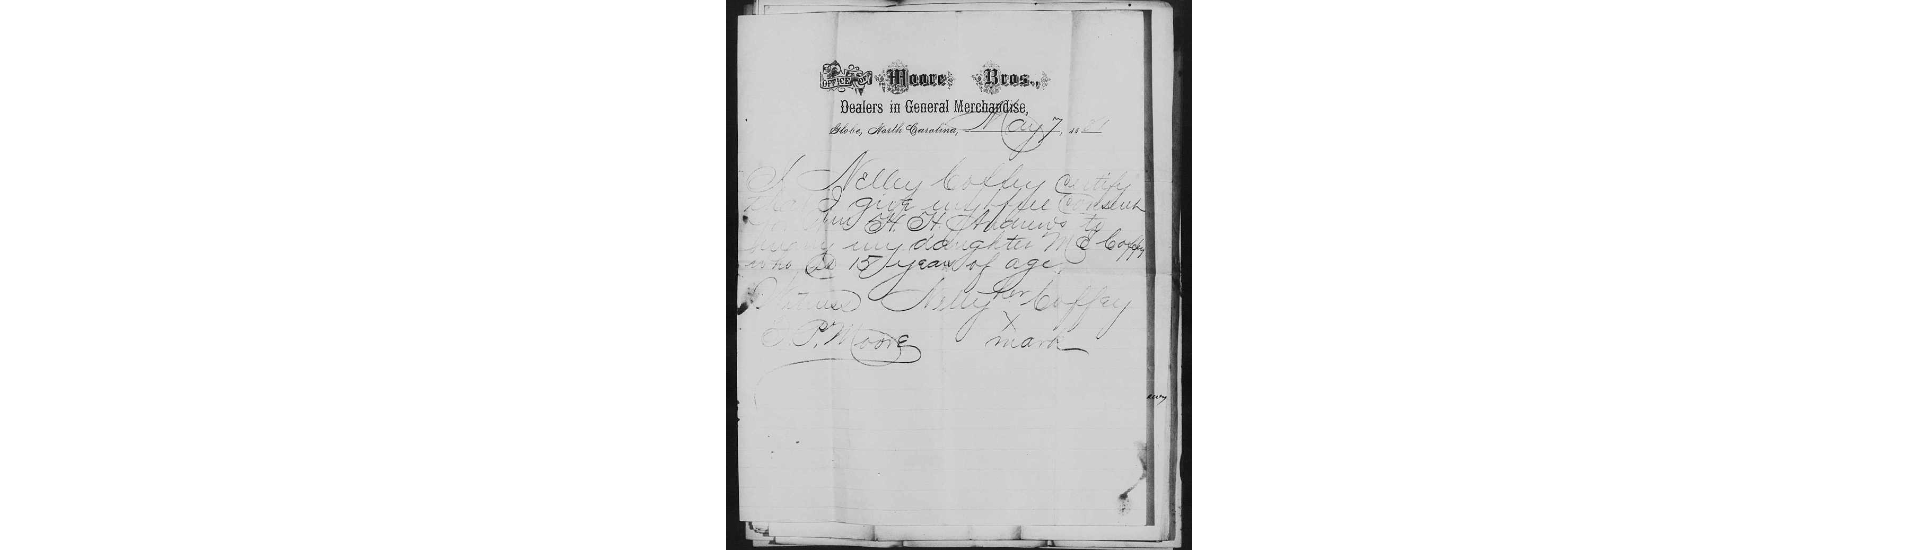 OFFICE OF Moore Bros.,
Dealers in General Merchandise,
Globe, North Carolina, May 7, 18
I Nelley Coffey certify
that I give my full consent
H. H. Andrews to
marry my daughter M E Coffey
who is 15 years of age.
Witness Nelly her Coffey
X
P. Moore mark